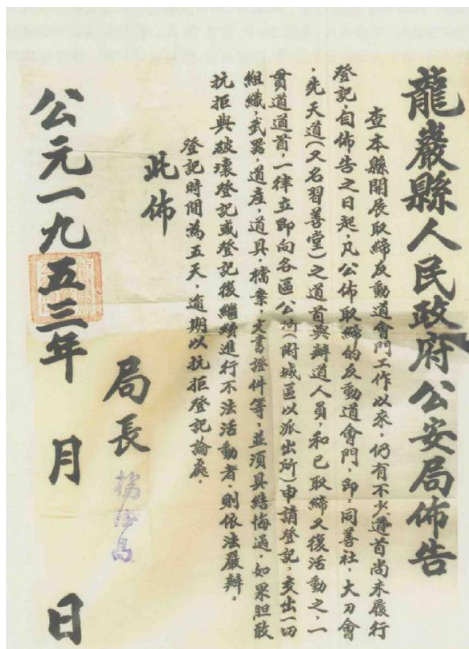 龍巖縣人民政府公安局佈告
查本縣開展取締反動道會門工作以來,仍有不少道首尚未履行
登記,自佈告之日起,凡公佈取締的反動道會門,即,同善社,大刀會
,先天道(又名習善堂)之道首與辦道人員,和已取締又復活動之,一
貫道道首,一律立即向各區公所(附城區以派出所)申請登記,交出一切
組織,武器,道產,道具,檔案,文書證件等,並須具結悔過,如果胆敢
抗拒與破壞登記或登記後繼續進行不法活動者,則依法嚴辦。
登記時間為五天,逾期以抗拒登記論處,
此佈
局長
公元一九五三年 月 日